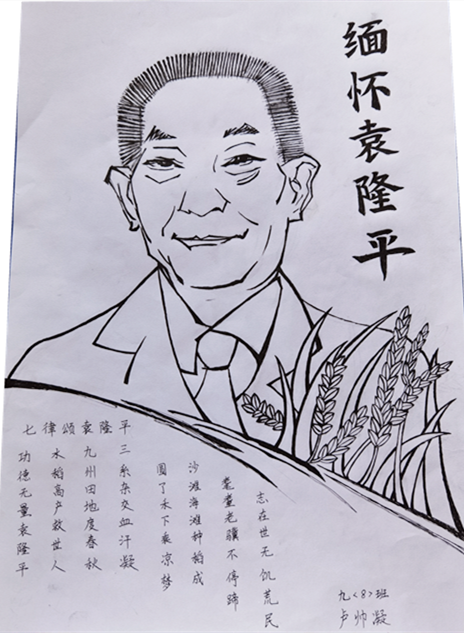 缅怀袁隆平
七律颂袁隆平
志在世无饥荒民
耄耋老骥不停蹄
沙滩海滩种稻成
圆了禾下乘凉梦
三系杂交血汗凝
九州田地度春秋
水稻高产救世人
功德无量袁隆平
九<8>班
卢帅凝